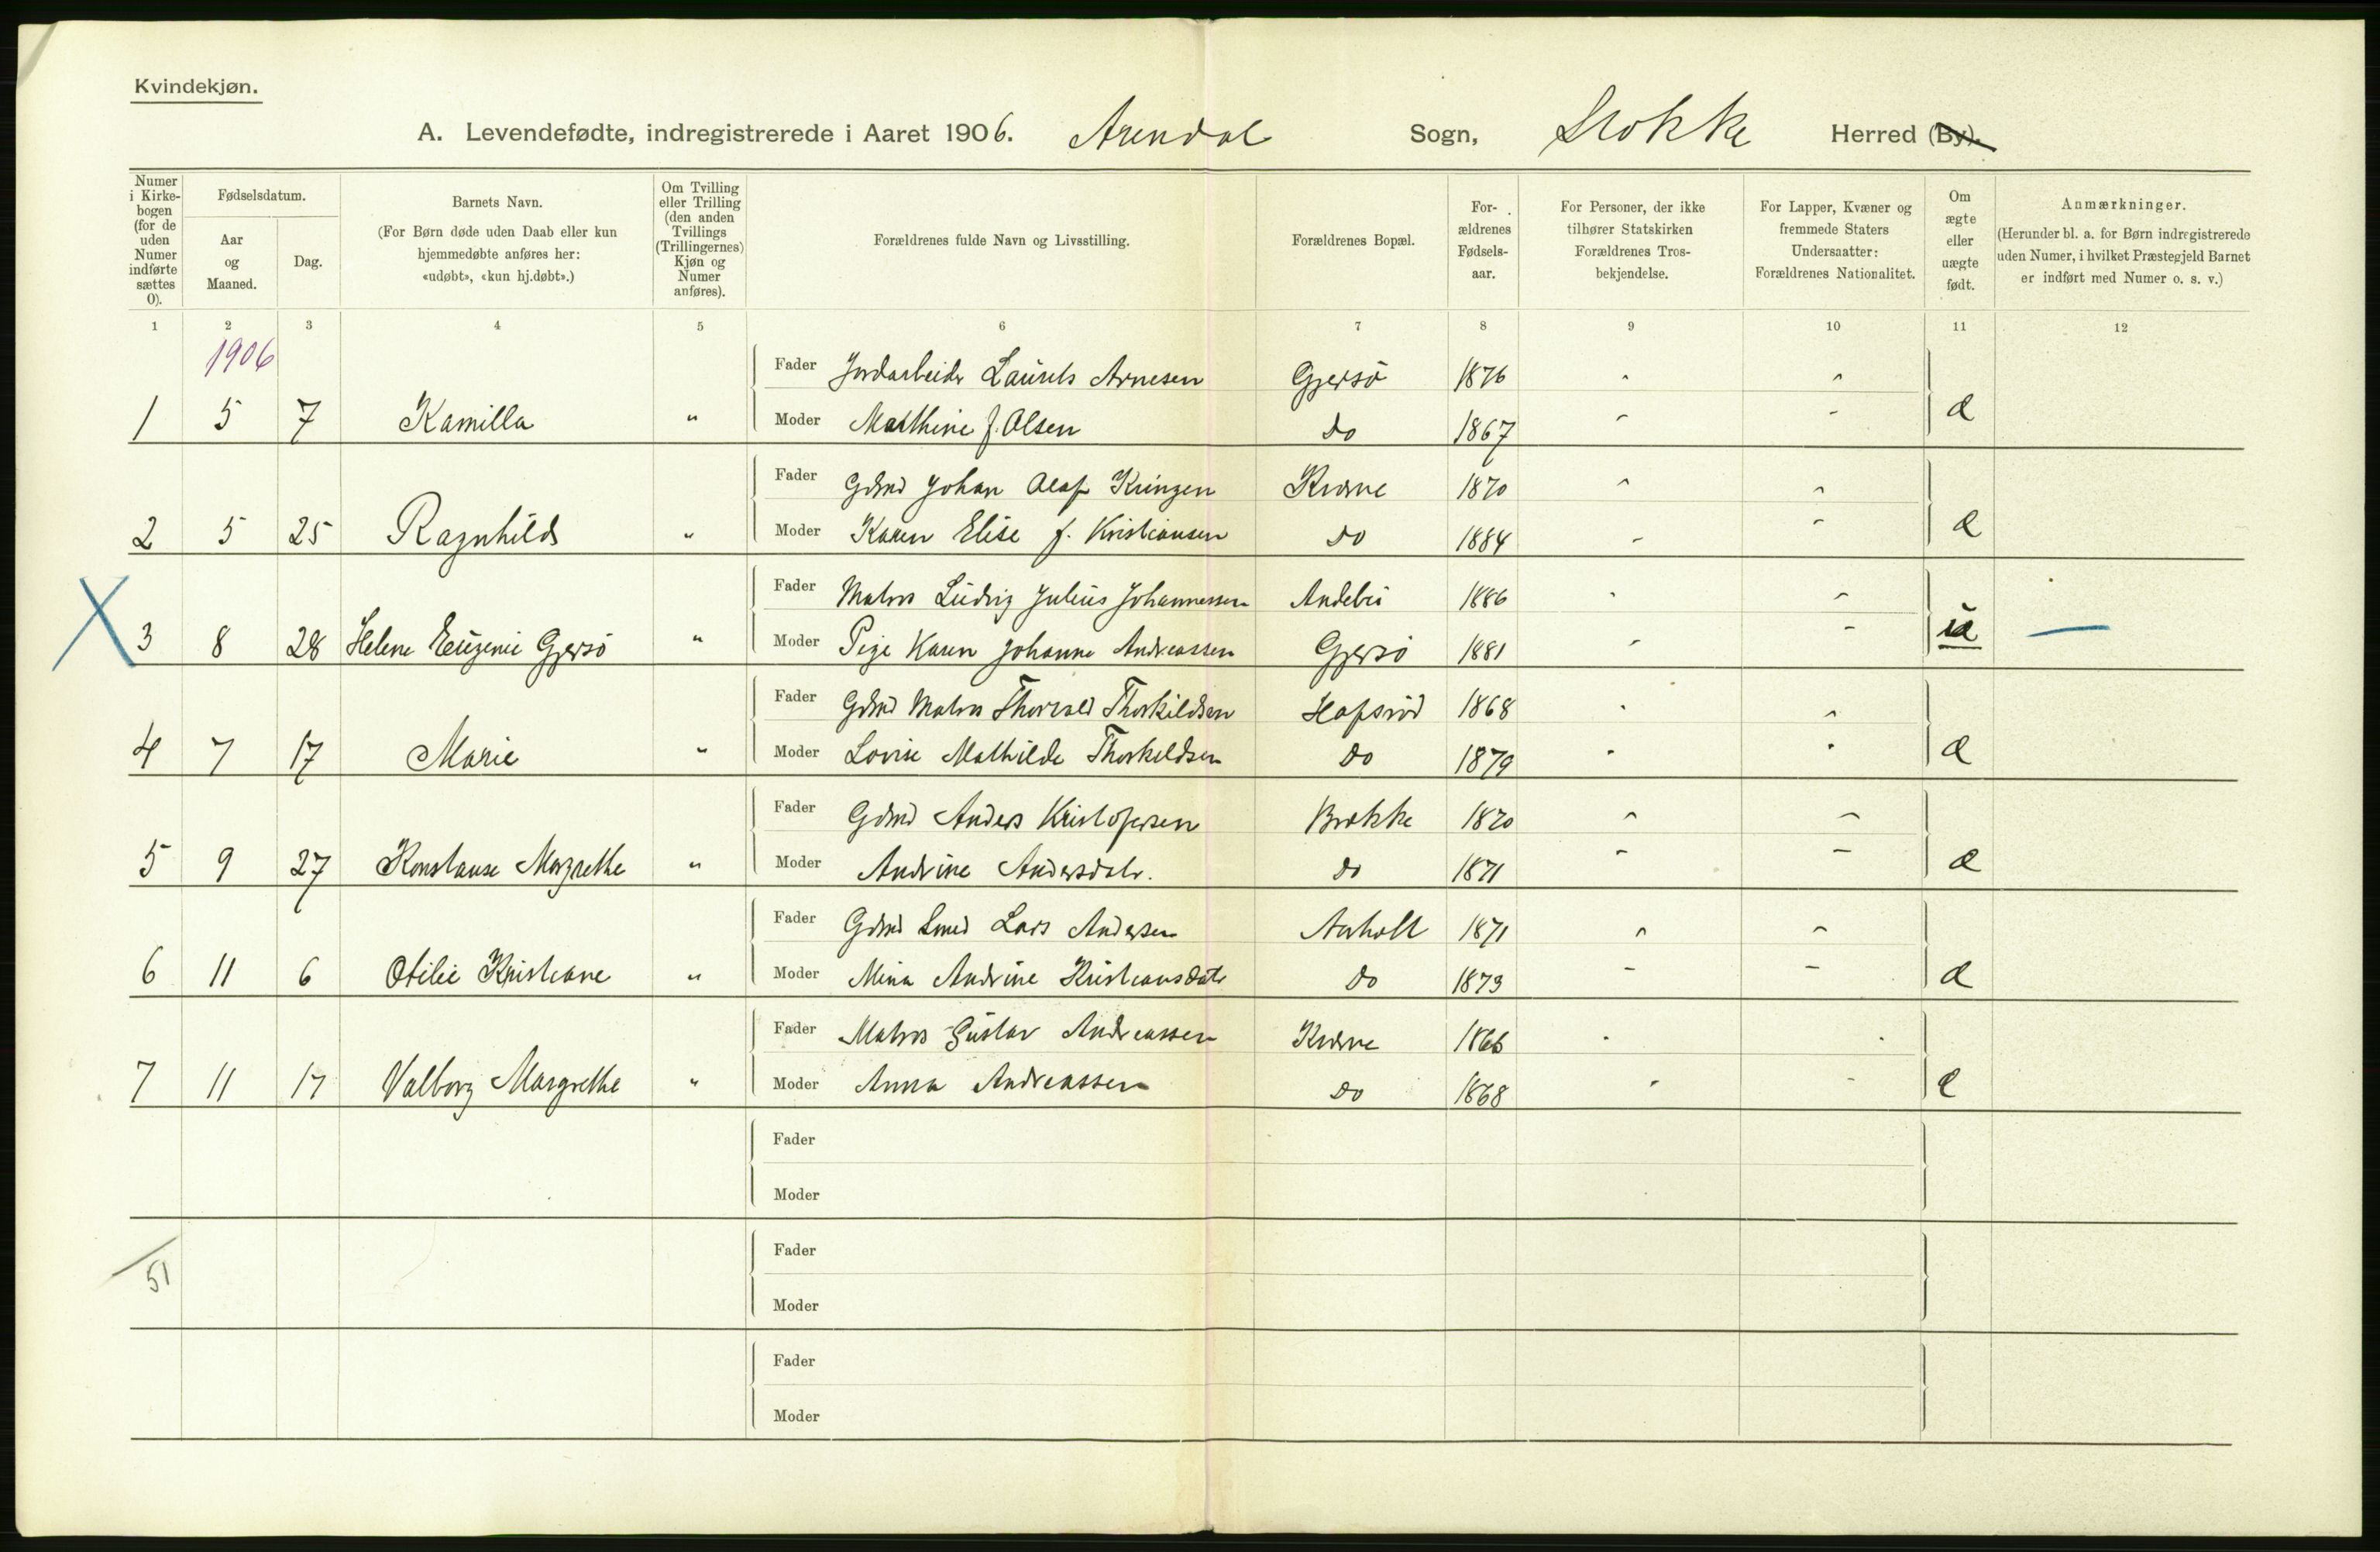 Kvindekjøn.
A. Levendefødte, indregistrerede i Aaret 1906. Arendal Sogn, Stokke Herred (By).
Numer i Kirkebogen (for de uden Numer indførte sættes 0).
Fødselsdatum.
Aar og Maaned.
Dag.
Barnets Navn.
(For Børn døde uden Daab eller kun hjemmedøbte anføres her: «udøbt», «kun hj.døbt».)
Om Tvilling eller Trilling (den anden Tvillings (Trillingernes) Kjøn og Numer anføres).
Forældrenes fulde Navn og Livsstilling.
Forældrenes Bopæl.
For- ældrenes Fødsels- aar.
For Personer, der ikke tilhører Statskirken Forældrenes Tros- bekjendelse.
For Lapper, Kvæner og fremmede Staters Undersaatter: Forældrenes Nationalitet.
Om ægte eller uægte født.
Anmærkninger.
(Herunder bl. a. for Børn indregistrerede uden Numer, i hvilket Præstegjeld Barnet er indført med Numer o. s. v.)
1 2 3 4 5 6 7 8 9 10 11 12
1906
Fader Jordarbeider Laurits Arnesen Gjersö 1876
1 5 7 Kamilla " Moder Mathine f. Olsen do 1867 æ
Fader Gdmd Johan Olaf Kringen 1870
2 5 25 Ragnhild " Moder Karen Elise f. Kristiansen do 1884 æ
Fader Matros Ludvig Julius Johannessen Andebu 1886
3 8 28 Helene Eugenie Gjersö " Moder Pige Karen Johanne Andreassen Gjersö 1881 uæ —
Fader Gdmd Matros Thorvald Thorkildsen 1868
4 7 17 Marie " Moder Lovise Mathilde Thorkildsen do 1879 æ
Fader Gdmd Anders Kristofersen Brekke 1870
5 9 27 Konstanse Margrethe " Moder Andrine Andersdatr. do 1871 æ
Fader Gdmd Smed Lars Andersen Aarholt 1871
6 11 6 Otilie Kristiane " Moder Mina Andrine Kristiansdatr do 1873 æ
Fader Matros Gustav Andreassen 1866
7 11 17 Valborg Margrethe " Moder Anna Andreassen do 1868 æ
Fader
Moder
Fader
51
Moder
Fader
Moder